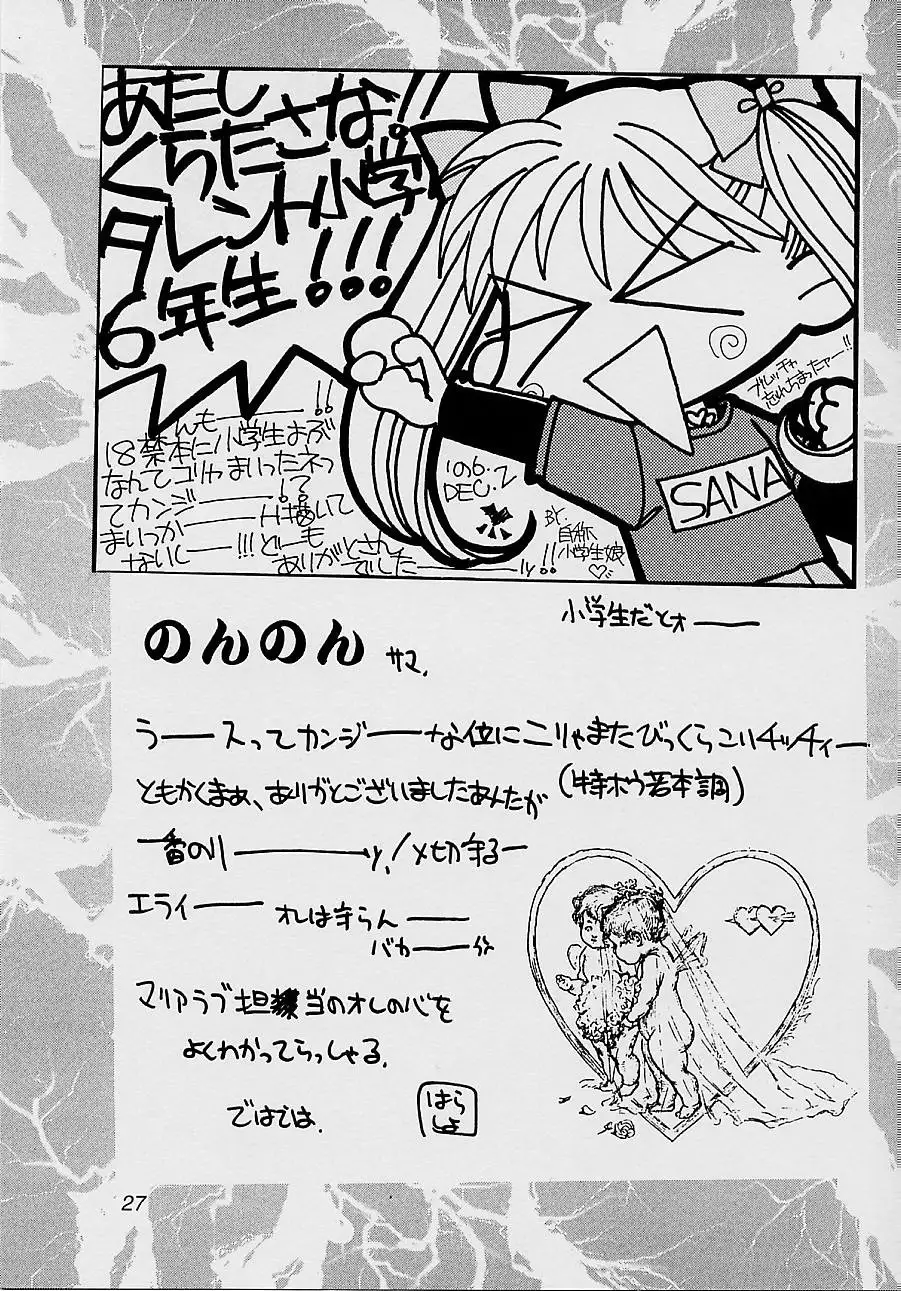 あたし
くらたさな!!
タレント小学
6年生!!!
んもー!!
18禁本に小学生よぶ
なんてゴリャまいったネっ
てカンジー!?て
まいっかーH描いて
ないしー!!!どーも
ありがとさん
でしたーッ!!
'96.
DEC.2
BY
自称
小学生娘♡
SANA
忘れちまったァー!!
小学生だとォー
のんのん サマ.
うースってカンジーな位にこりゃまたびっくらこいチッチィー
ともかくまぁ、ありがとございましたあんたが(特ボウ若本調)
一番のりーッ!〆切守るー
エライー オレは守らんー
バカー
マリアラブ担当のオレの心を
よくわかってらっしゃる.
ではでは.
はら
しょ
27